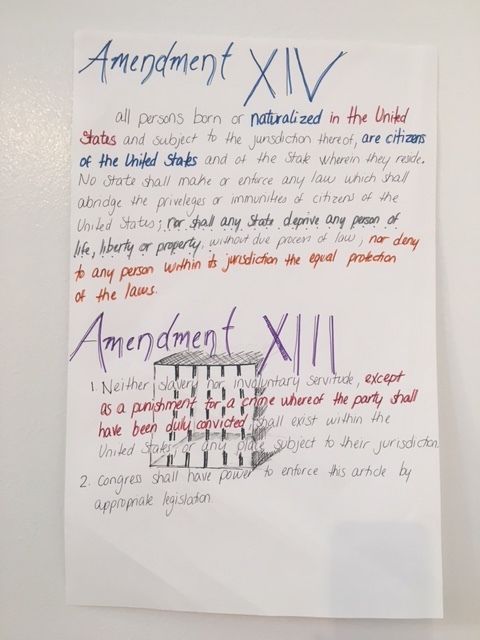 Amendment XIV
all persons born or naturalized in the United
States and subject to the jursdiction thereof, are citizens
of the United States and of the State wherein they reside.
No State shall make or enforce any law which shall
abridge the priveleges or immunities of citizens of the
United States; nor shall any State deprive any person of
life, liberty or property, without due process of law; nor deny
to any person within its jurisdiction the equal protection
of the laws.
Amendment XIII
1. Neither slavery nor involuntary servitude, except
as a punishment for a crime whereof the party shall
have been duly convicted, shall exist within the
United States or any place subject to their jurisdiction.
2. Congress shall have power to enforce this article by
appropriate legislation.